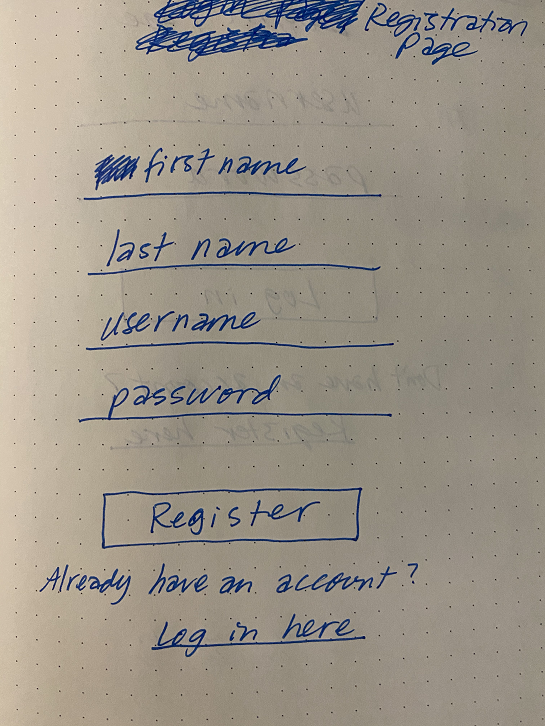 Registration
Page
first name
last name
username
password
Register
Already have an account?
Log in here